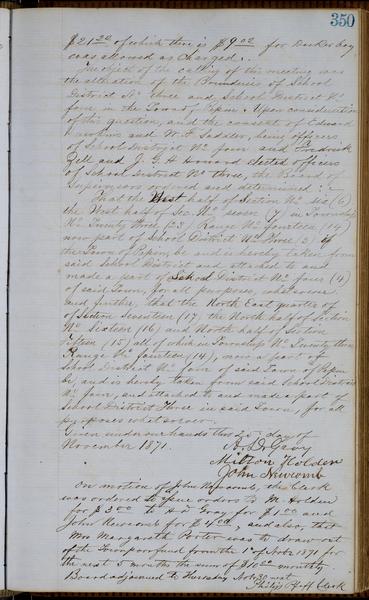 350
$21.20 of which there is $9.00 for
was allowed as charged.
The object of the calling of this meeting was
the alteration of the Boundaries of School
District No three and School District No
four in the Town of Pepin. Upon consideration
of this question, and the consent of
and W. F. Sadder, being officers
of School District No four and Frederick
Zell and J. G. H. Howard elected officers
of School District No three, the Board of
Supervisors ordered and determined :-
That the West half of Section No six (6)
the West half of Sec. No seven (7) in Township
No Twenty three (23) Range No fourteen (14)
now part of School District No three (3) of
the Town of Pepin, be and is hereby taken from
said School District and attached to and
made a part of School District No four (4)
of said Town, for all purposes whatsoever
and further, that the North East quarter of
of Section Seventeen (17) the North half of Section
No Sixteen (16) and North half of Section
fifteen (15) all of which in Township No Twenty three
Range No fourteen (14), now a part of
School District No four of said Town of Pepin
be, and is hereby taken from said School District
No four, and attached to and made a part of
School District Three in said Town, for all
purposes whatsoever.
Given under our hands this 25 day of
November 1871.
H. D. Gray
Milton Holden
John Newcomb
On motion of John Newcomb the Clerk
was ordered to give orders to M. Holden
for $3.00 to H. D. Gray for $1.00 and
John Newcomb for $4.00, and also, that
Mrs Margareth Porter was to draw out
of the Town poor fund from the 1st of Nov. 1871 for
the next 5 months the sum of $10.00 monthly
Board adjourned to Thursday Nov 30 next
Philip Pfaff Clerk